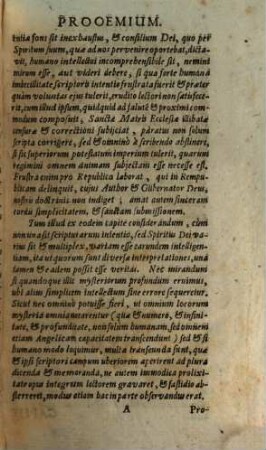 PROOEMIUM.
entia fons sit inexhaustus, & consilium Dei, quo per
Spiritum suum, qua ad nos pervenire oportebat, dicta-
vit, humano intellectui incomprehensibile sit, nemini
mirum esse, aut videri debere, si quâ forte humanâ
imbecillitate scriptoris intentio frustrata fuerit & præter
quam voluntas ejus tulerit, erudito lectori non satisfece-
rit, cum illud ipsum, quidquid ad salutē & proximi com-
modum composuit, Sanctæ Matris Ecclesiæ illibatæ
censuræ & correctioni subjiciat, paratus non solum
scripta corrigere, sed & omninò à scribendo abstinere,
si sit superiorum potestatum imperium tulerit, quarum
regimini omnem animam subjectam esse necesse est.
Frustra enim pro Republica laborat, qui in Rempu-
blicam delinquit, cujus Author & Gubernator Deus,
nostra doctrinis non indiget; amat autem sinceram
cordis simplicitatem, & sanctam submissionem.
Tum illud ex eodem capite considerandum, cùm
omnia sint scripturarum intenta, sed Spiritus Dei va-
rius sit & multiplex, variam esse earundem intelligen-
tiam, ita ut quorum sunt diversæ interpretationes, una
tamen & eadem possit esse veritas. Nec mirandum
si quandoque illis mysteriorum profundum eruimus,
ubi alius simplicem intellectum sine errore sequeretur.
Sicut nec omnino potuisse fieri, ut omnium locorum
mysteria omnia enarrentur (quæ & numero, & infini-
tate, & profunditate, non solùm humanam, sed omnem
etiam Angelicam capacitatem transcendunt) sed & si
humano modo loquimur, multa transeunda sunt, quæ
& ipsi scriptori campum uberiorem aperirent ad plura
dicenda & memoranda, ne autem immodica prolixi-
tate opus integrum lectorem gravaret, & fastidio ab-
sterreret, modus etiam hac in parte observandus erat.
A Pro-